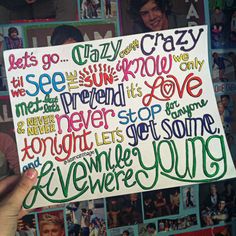 let's go... Crazy Crazy Crazy
til we See THE SUN I KNOW we Only
met but let's Pretend it's LOVE
& NEVER NEVER never STOP for anyone
tonight LET'S get some,
and live while we're YOUNG